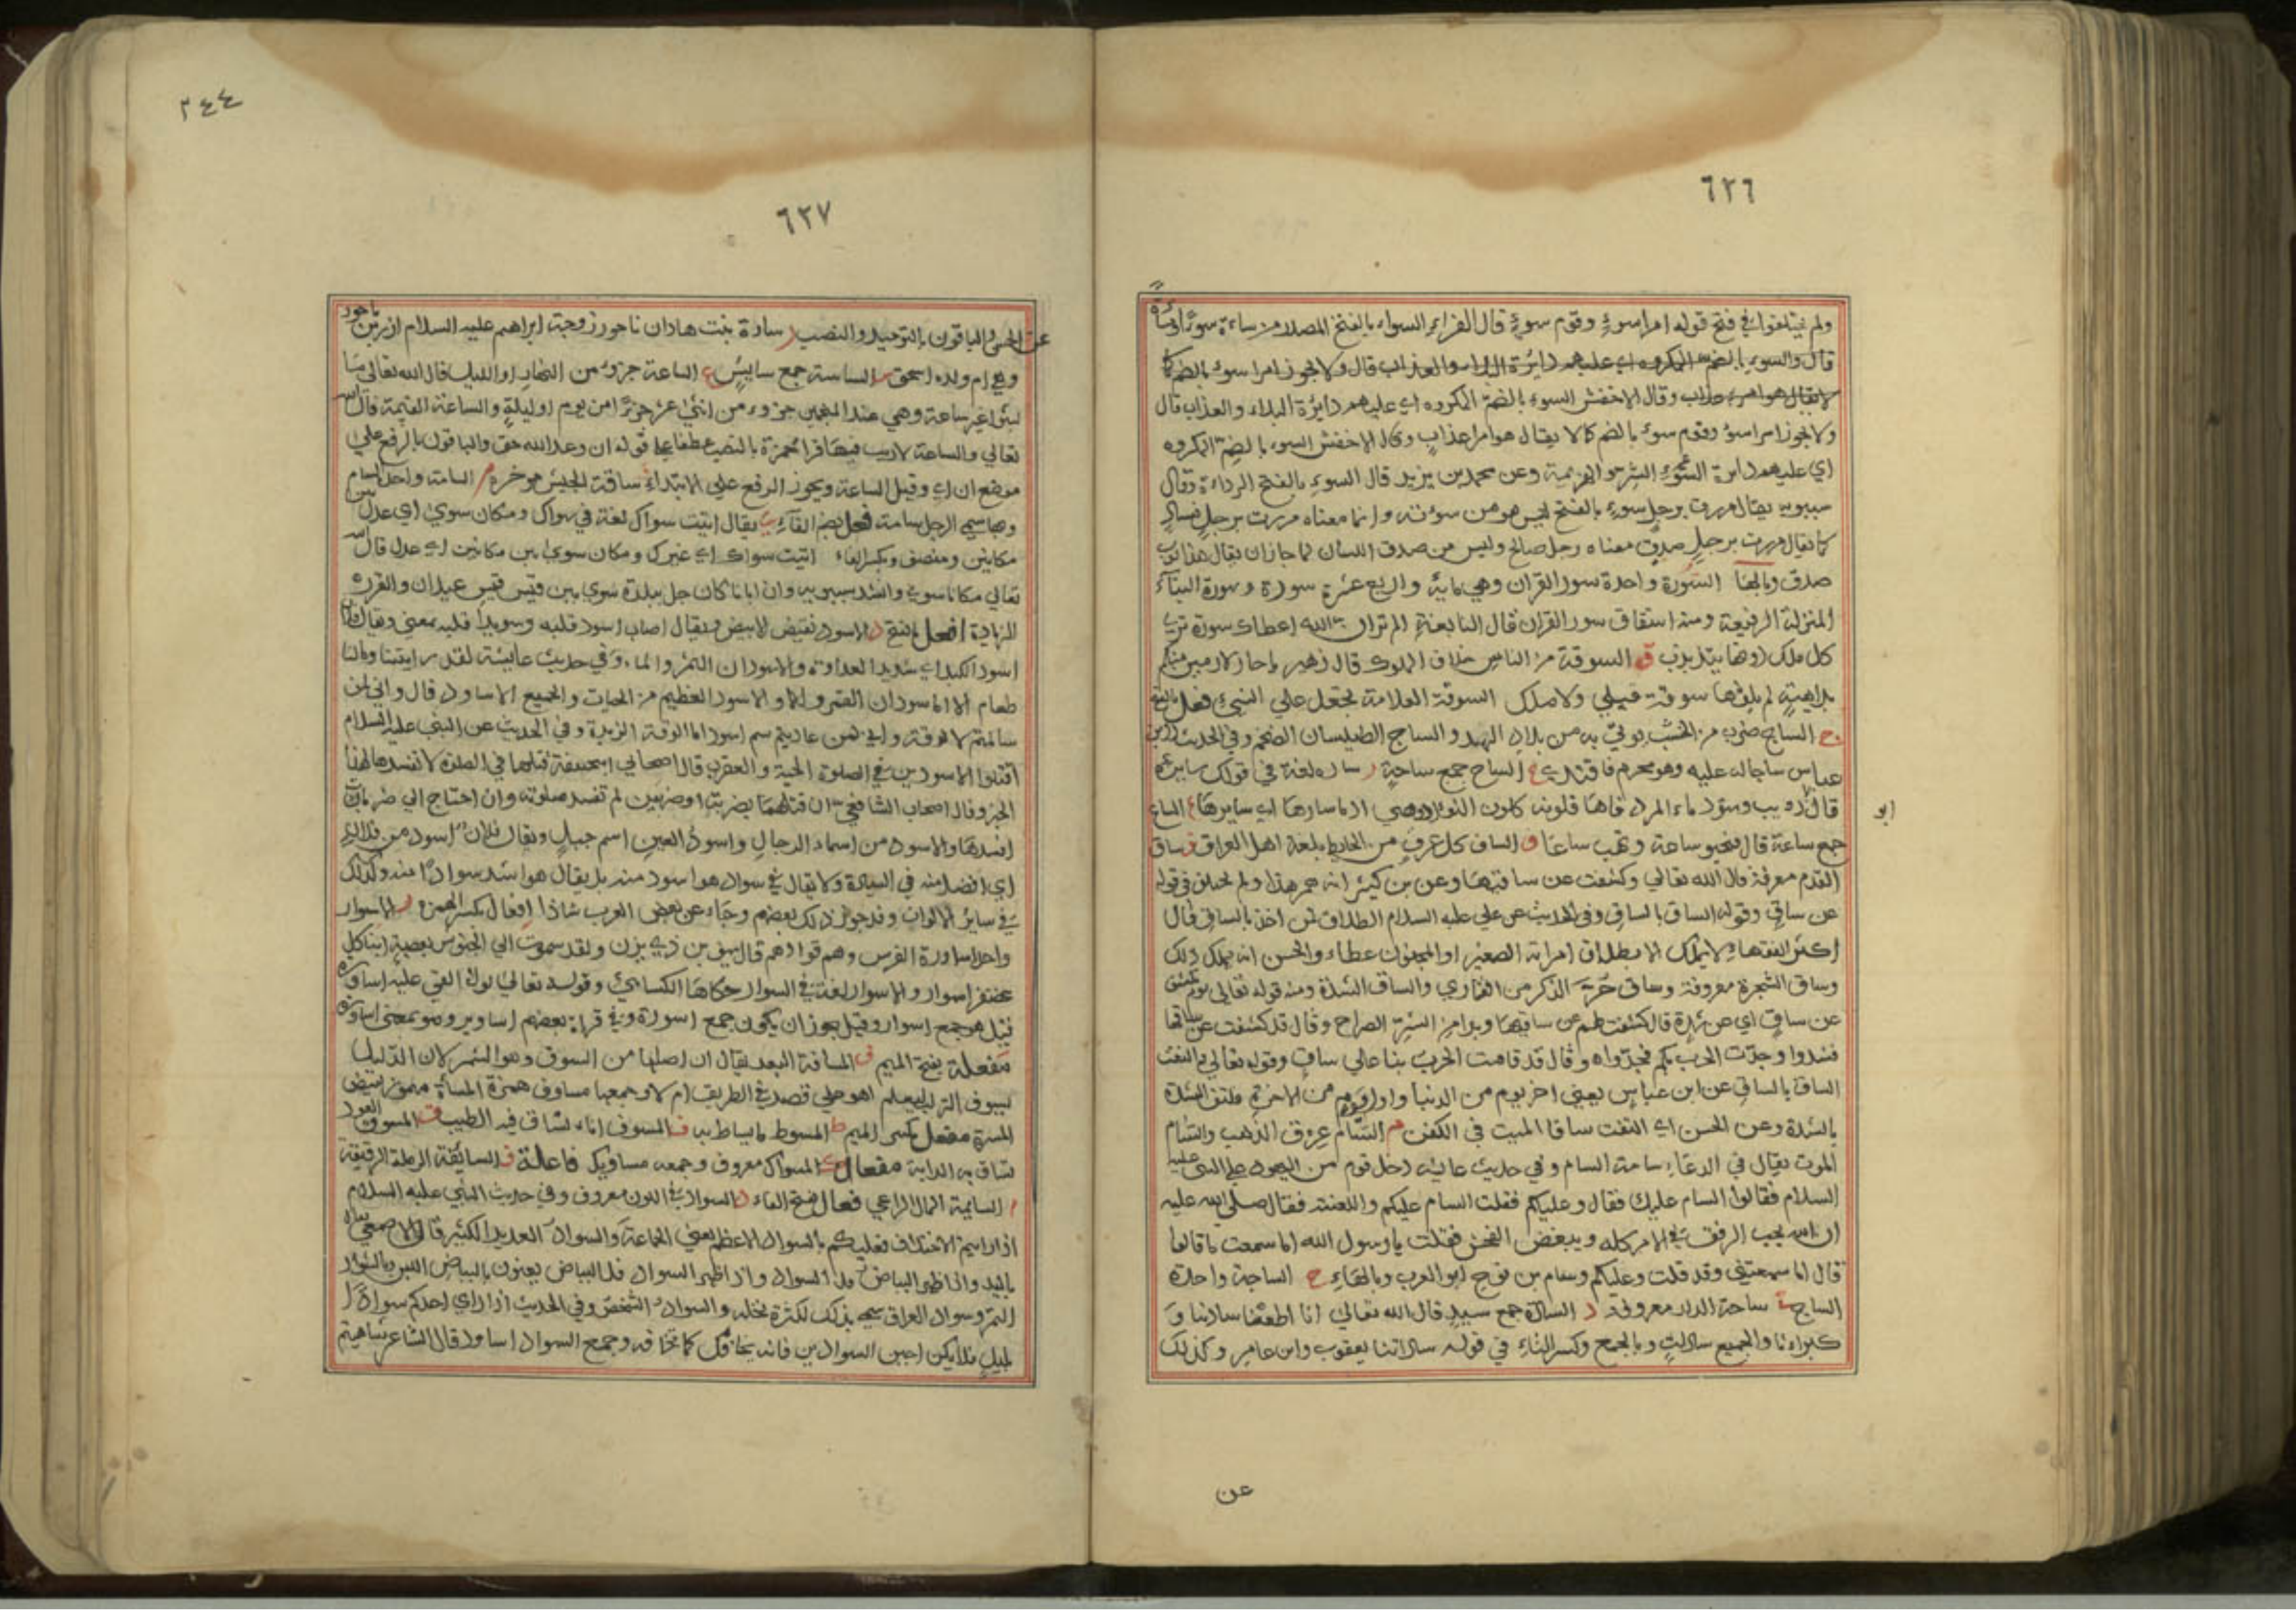 ٦٢٦
ولم يختلفوا في فتح قوله امرا سوء وقوم سوء قال الفراء السوء بالفتح المصدر من ساءه سوءا ومساءة
قال والسوء بالضم المكروه اي عليهم دايرة البلاء والعذاب قال ولا يجوز امرا سوء بالضم كما
لا يقال هو امرء عذاب وقال الاخفش السوء بالضم المكروه اي عليهم دايرة البلاء والعذاب قال
ولا يجوز امرا سوء وقوم سوء بالضم كما لا يقال هو امرا عذاب وقال الاخفش السوء بالضم المكروه
اي عليهم دايرة الشر والهزيمة وعن محمد بن يزيد قال السوء بالفتح الرداءة وقال
سيبويه يقال مررت برجل سوء بالفتح ليس هو من سوءته وانما معناه مررت برجل فساد
كما يقال مررت برجل صدق معناه رجل صالح وليس من صدق اللسان لما جاز ان يقال هذا ثوب
صدق وبالهاء السورة واحدة سور القران وهي ماية واربع عشرة سورة وسورة البناء
المنزلة الرفيعة ومنه اشتقاق سور القران قال النابغة الم تر ان الله اعطاك سورة ترى
كل ملك دونها يتذبذب ق السوقة من الناس خلاف الملوك قال زهير يا حار لا ارمين منكم
بداهية لم يلقها سوقة قبلي ولا ملك السومة العلامة تجعل علي الشيء فعل بالفتح
ج الساج ضرب من الخشب يوتي به من بلاد الهند والساج الطيلسان الضخم وفي الحديث ابن
عباس ساجا له عليه وهو محرم فافتدي ح الساح جمع ساحة ر سار لغة في قولك سايره
قال ذويب وسود ماء المرد فاها فلونه كلون النوور وهي ادماء سارها اي سايرها ع الساع
جمع ساعة قال فيخبو ساعة ويهب ساعا ف الساف كل عرق من الحايط بلغة اهل العراق ق ساق
القدم معرفة قال الله تعالي وكشفت عن ساقيها وعن بن كثير انه همز هذا ولم يختلف في قوله
عن ساق وقوله الساق بالساق وفي الحديث عن علي عليه السلام الطلاق لمن اخذ بالساق قال
اكثر الفقهاء لا يملك الاب طلاق امراة الصغير او المجنون وعطاء والحسن انه يملك ذلك
وساق الشجرة معروفة وساق حر الذكر من القماري والساق الشدة ومنه قوله تعالي يوم يكشف
عن ساق اي عن شدة قال كشفت لهم عن ساقها وبدا من الشر الصراح وقال قد كشفت عن ساقها
فشدوا وجدت الحرب بكم فجدوا ه وقال قد قامت الحرب بنا علي ساق وقوله تعالي والتفت
الساق بالساق عن ابن عباس يعني اخر يوم من الدنيا واول يوم من الاخرة فتلتف الشدة
بالشدة وعن الحسن اي التفت ساقا الميت في الكفن م السام عرق الذهب والسام
الموت يقال في الدعاء سامة السام وفي حديث عايشة دخل قوم من اليهود علي النبي عليه
السلام فقالوا السام عليك فقال وعليكم فقلت السام عليكم واللعنة فقال صلي الله عليه
ان الله يحب الرفق في الامر كله ويبغض الفحش فقلت يا رسول الله اما سمعت ما قالوا
قال اما سمعتني وقد قلت وعليكم وسام بن نوح ابو العرب وبالهاء ج الساجة واحدة
الساج ح ساحة الدار معروفة د السادة جمع سيد قال الله تعالي انا اطعنا سادتنا و
كبراءنا والجميع سادات وبالجمع وكسر التاء في قوله ساداتنا يعقوب وابن عامر وكذلك
ابو
عن
٢٤٤
٦٢٧
عن الحسن والباقون بالتوحيد والنصب ر سارة بنت هاران ناحور زوجة ابراهيم عليه السلام ازر بن ناحور
وهي ام ولده اسحق س الساسة جمع سايس ع الساعة جزوء من النهار او الليل قال الله تعالي ما
لبثوا غير ساعة وهي عند المنجمين جزوء من اثني عشر جزءا من يوم او ليلة والساعة القيمة قال الله
تعالي والساعة لا ريب فيها قرا حمزة بالنصب عطفا علي قوله ان وعد الله حق والباقون بالرفع علي
موضع ان اي وقيل الساعة ويجوز الرفع علي الابتداء ق ساقة الجيش موخره م السامة واحد السام
وبها سمي الرجل سامة فعل بضم الفاء ي يقال اتيت سواك لغة في سواك ومكان سوي اي عدل بين
مكانين ومنصف وبكسر الفاء اتيت سواك اي غيرك ومكان سوي بين مكانين اي عدل قال الله
تعالي مكانا سوي وانشد سيبويه وان ابانا كان حل ببلدة سوي بين قيس قيس عيلان والفزره
الزيادة افعل بالفتح د الاسود نقيض الابيض ويقال اصاب اسود قلبه وسويدا قلبه بمعني ويقال فلان
اسود الكبد اي شديد العداوة والاسودان التمر والماء وفي حديث عايشة لقد رايتنا ومالنا
طعام الا الاسودان التمر والماء والاسود العظيم من الحيات والجميع الاساود قال واني لمن
سالمتم لالوقة واني لمن عاديتم سم اسود اما الوقة الزبدة وفي الحديث عن النبي عليه السلام
اقتلوا الاسودين في الصلوة الحية والعقرب قال اصحاب ابي حنيفة قتلهما في الصلوة لا تفسدها لهذا
الخبر وقال اصحاب الشافعي ان قتلهما بضربة او ضربتين لم تفسد صلوته وان احتاج الي ضربات
افسدها والاسود من اسماء الرجال واسود العين اسم جبل ويقال فلان اسود من فلان
اي افضل منه في السيادة ولا يقال في سواد هو اسود منه بل يقال هو اشد سوادا منه وكذلك
في ساير الالوان وقد جوز ذلك بعضهم وجاء عن بعض العرب شاذا افعال بكسر الهمزة ر الاسوار
واحد اساورة الفرس وهم قوادهم قال سيف بن ذي يزن ولقد سموت الي الحبوش بعصبة ابناء كل
غضنفر اسوار والاسوار لغة في السوار حكاها الكسائي وقوله تعالي لولا القي عليه اساورة
قيل هو جمع اسوار وقيل يجوز ان يكون جمع اسورة وفي قراءة بعضهم اساوير وهو بمعني اساورة
مفعلة بفتح الميم ف المسافة البعد يقال ان اصلها من السوف وهو الشم لان الدليل
يسوف التراب ليعلم اهو علي قصد في الطريق ام لا وجمعها مساوف همزة المساة مهموز نقيض
المسرة مفعل بكسر الميم ط المسوط ما يساط به ف المسوف اناء تساق فيه الطيب ق المسوق العود
تساق به الدابة مفعال ك المسواك معروف وجمعه مساويك فاعلة ف السائفة الرملة الرقيقة
م السايمة المال الراعي فعال بفتح الفاء د السواد في اللون معروف وفي حديث النبي عليه السلام
اذا رايتم الاختلاف فعليكم بالسواد الاعظم يعني الجماعة والسواد العدد الكثير قال الاصمعي يقال
باليد واذا ظهر البياض قل السواد واذا ظهر السواد قل البياض يعنون بالبياض اللبن وبالسواد
التمر وسواد العراق سمي بذلك لكثرة نخله والسواد الشخص وفي الحديث اذا راي احدكم سوادا
بليل فلا يكن اجبن السوادين فانه يخافك كما تخافه وجمع السواد اساود قال الشاعر تناهيتم